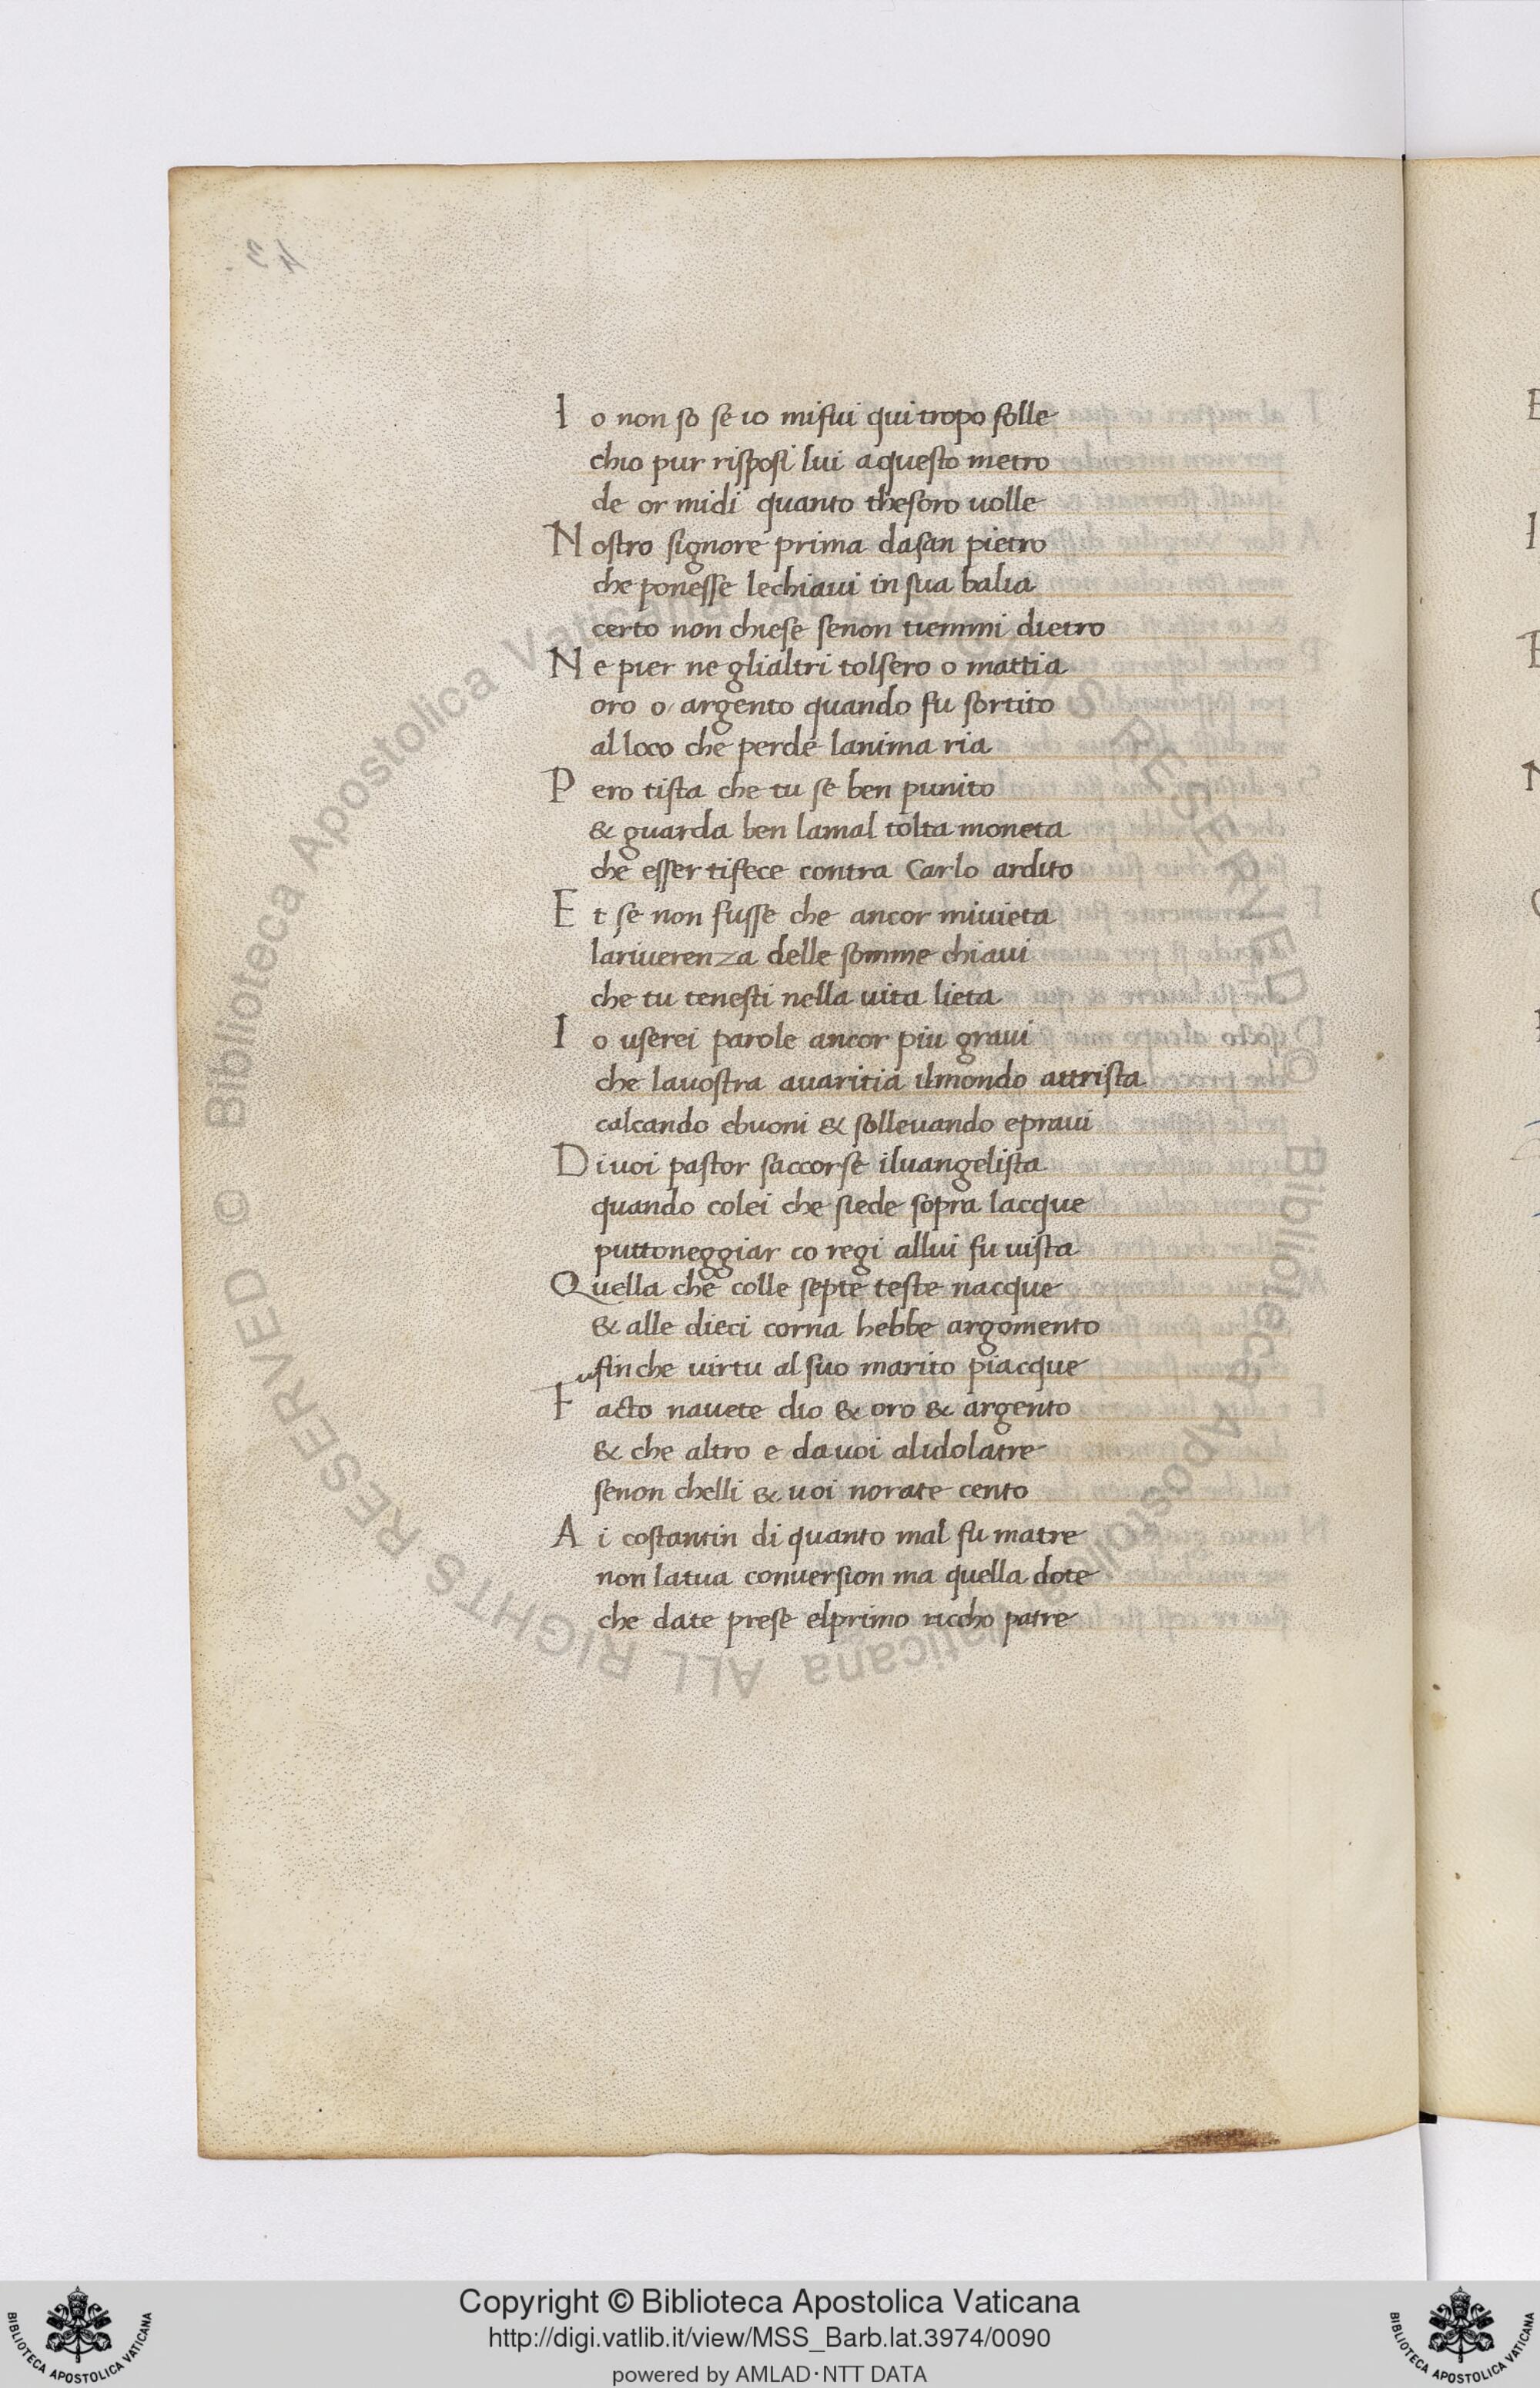 I o non so se io mi fui qui tropo folle
chio pur risposi lui aquesto metro
de or midi quanto thesoro uolle
N ostro signore prima dasan pietro
che ponesse lechiaui in sua balia
certo non chiese senon uiemmi dietro
N e pier ne glialtri tolsero o mattia
oro o argento quando fu sortito
al loco che perde lanima ria
P ero tista che tu se ben punito
& guarda ben lamal tolta moneta
che esser tifece contra Carlo ardito
E t se non fusse che ancor miuieta
lariuerenza delle somme chiaui
che tu tenesti nella uita lieta
I o userei parole ancor piu graui
che lauostra auaritia ilmondo attrista
calcando ebuoni & solleuando epraui
D i uoi pastor saccorse iluangelista
quando colei che siede sopra lacque
puttoneggiar co regi allui fu uista
Quella che colle septe teste nacque
& alle dieci corna hebbe argomento
finche uirtu al suo marito piacque
F acto nauete dio & oro & argento
& che altro e dauoi alidolatre
senon chelli & uoi norate cento
A i costantin di quanto mal fu matre
non latua conuersion ma quella dote
che date prese elprimo riccho patre
Copyright © Biblioteca Apostolica Vaticana
http://digi.vatlib.it/view/MSS_Barb.lat.3974/0090
powered by AMLAD·NTT DATA
BIBLIOTECA APOSTOLICA VATICANA
BIBLIOTECA APOSTOLICA VATICANA
Biblioteca Apostolica Vaticana ALL RIGHTS RESERVED ©
Biblioteca Apostolica Vaticana ALL RIGHTS RESERVED ©